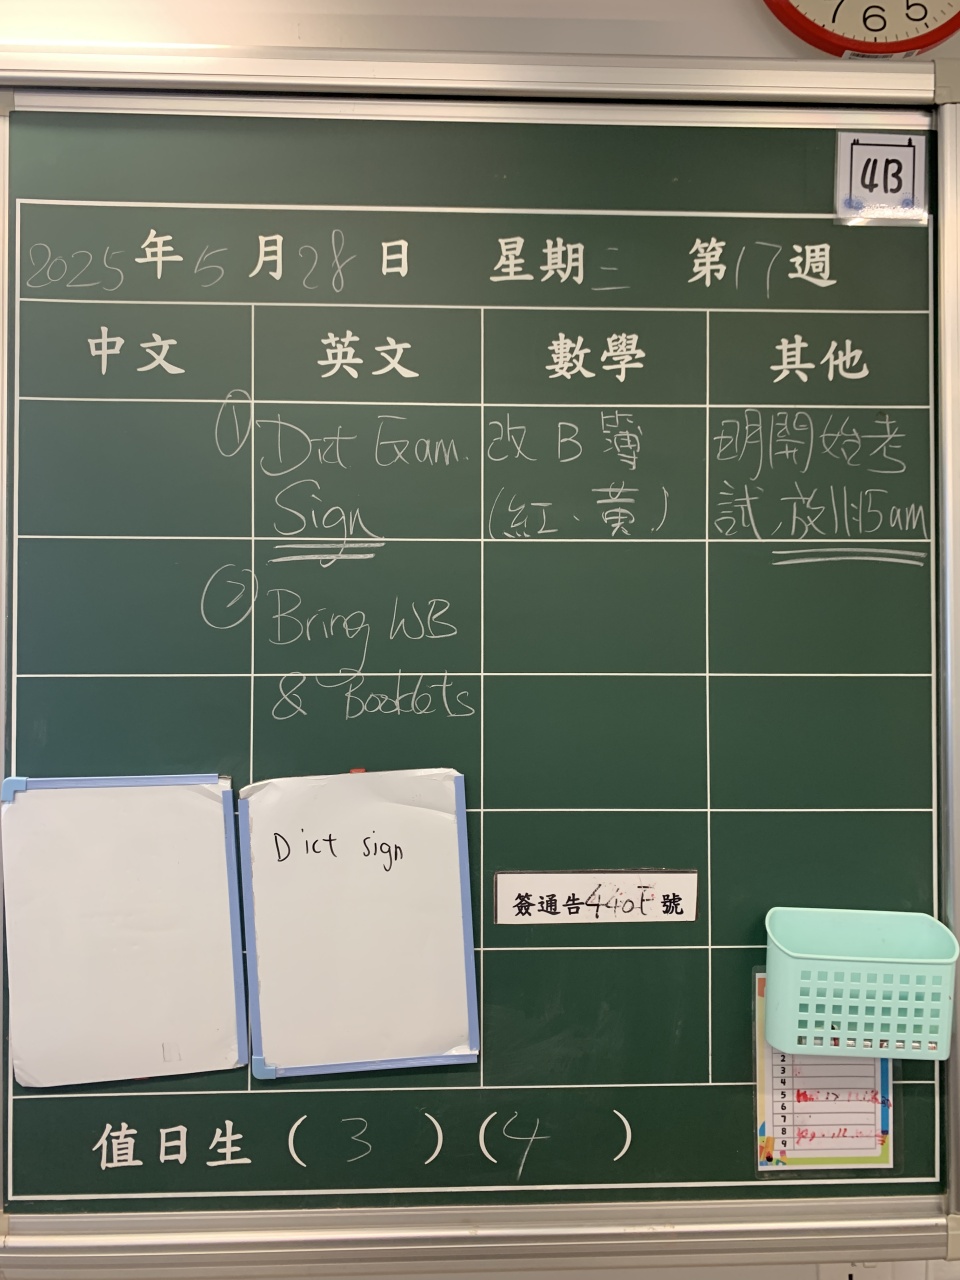 7 6 5
4B
2025年5月28日 星期三 第17週
中文 英文 數學 其他
① Dict Exam.
Sign
改B簿
(紅、黃)
明開始考
試,放11:15am
② Bring WB
& Booklets
Dict sign
簽通告440E號
2
3
4
5
6
7
8
9
值日生(3)(4)